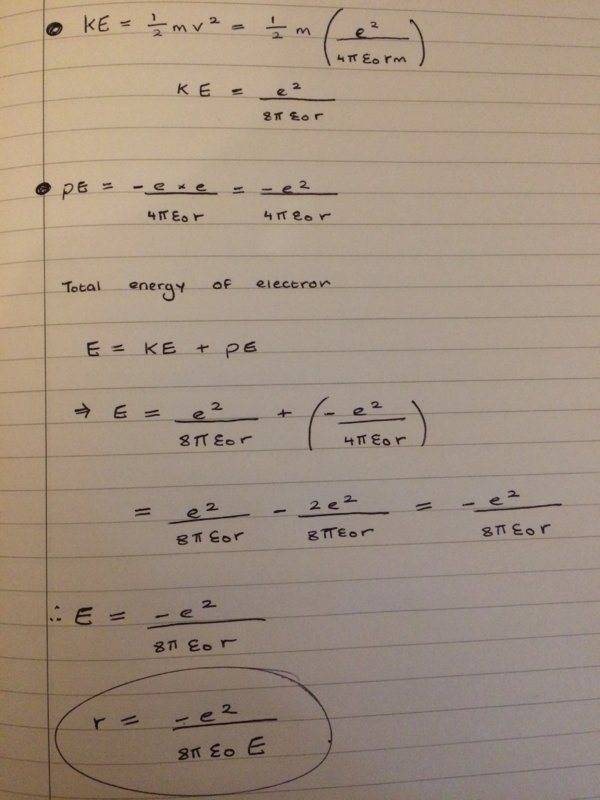 • KE = 1/2 mv² = 1/2 m (e² / 4πε₀rm)
KE = e² / 8πε₀r
• PE = -e × e / 4πε₀r = -e² / 4πε₀r
Total energy of electron
E = KE + PE
⇒ E = e² / 8πε₀r + (- e² / 4πε₀r)
= e² / 8πε₀r - 2e² / 8πε₀r = -e² / 8πε₀r
∴ E = -e² / 8πε₀r
r = -e² / 8πε₀E